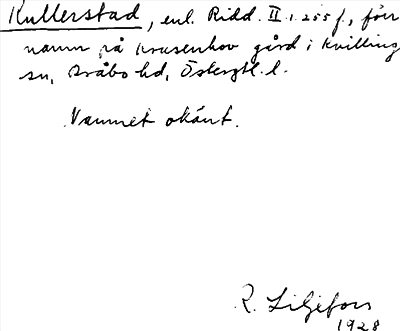 Kullerstad, enl. Ridd. II.1.255 f., förr
namn på Krusenhov gård i Kvilling
sn, Bråbo hd, Östergtl. l.
Namnet okänt.
R. Liljefors
1928